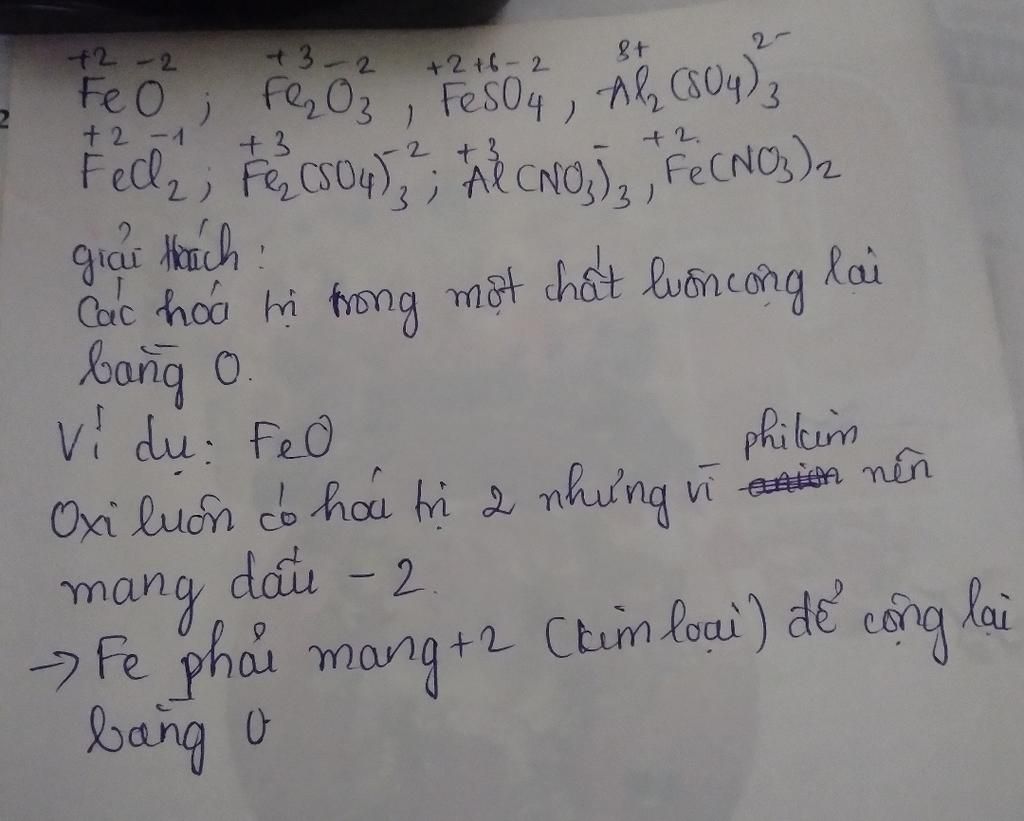 +2 -2 +3 -2 +2+6-2 3+ 2-
FeO ; Fe2O3 , FeSO4 , Al2(SO4)3
+2 -1 +3 -2 +3 - +2
FeCl2 ; Fe2(SO4)3 ; Al(NO3)3 , Fe(NO3)2
giải thích :
Các hoá trị trong một chất luôn cộng lại
bằng 0.
Ví dụ : FeO
phi kim
Oxi luôn có hoá trị 2 nhưng vì nên
mang dấu -2.
→ Fe phải mang +2 (kim loại) để cộng lại
bằng 0